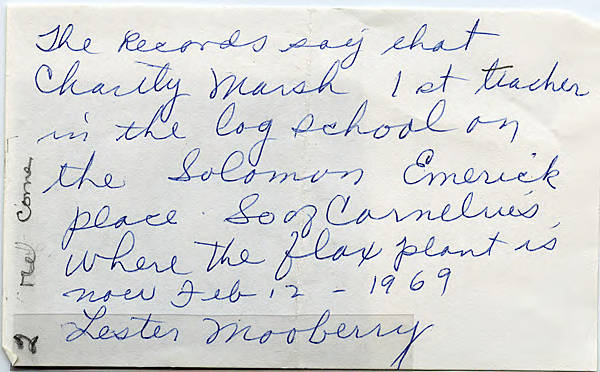 The Records say that
Charity Marsh 1st teacher
in the log school on
the Solomon Emerick
place. So of Cornelius,
where the flax plant is
now Feb 12 - 1969
Lester Mooberry
2